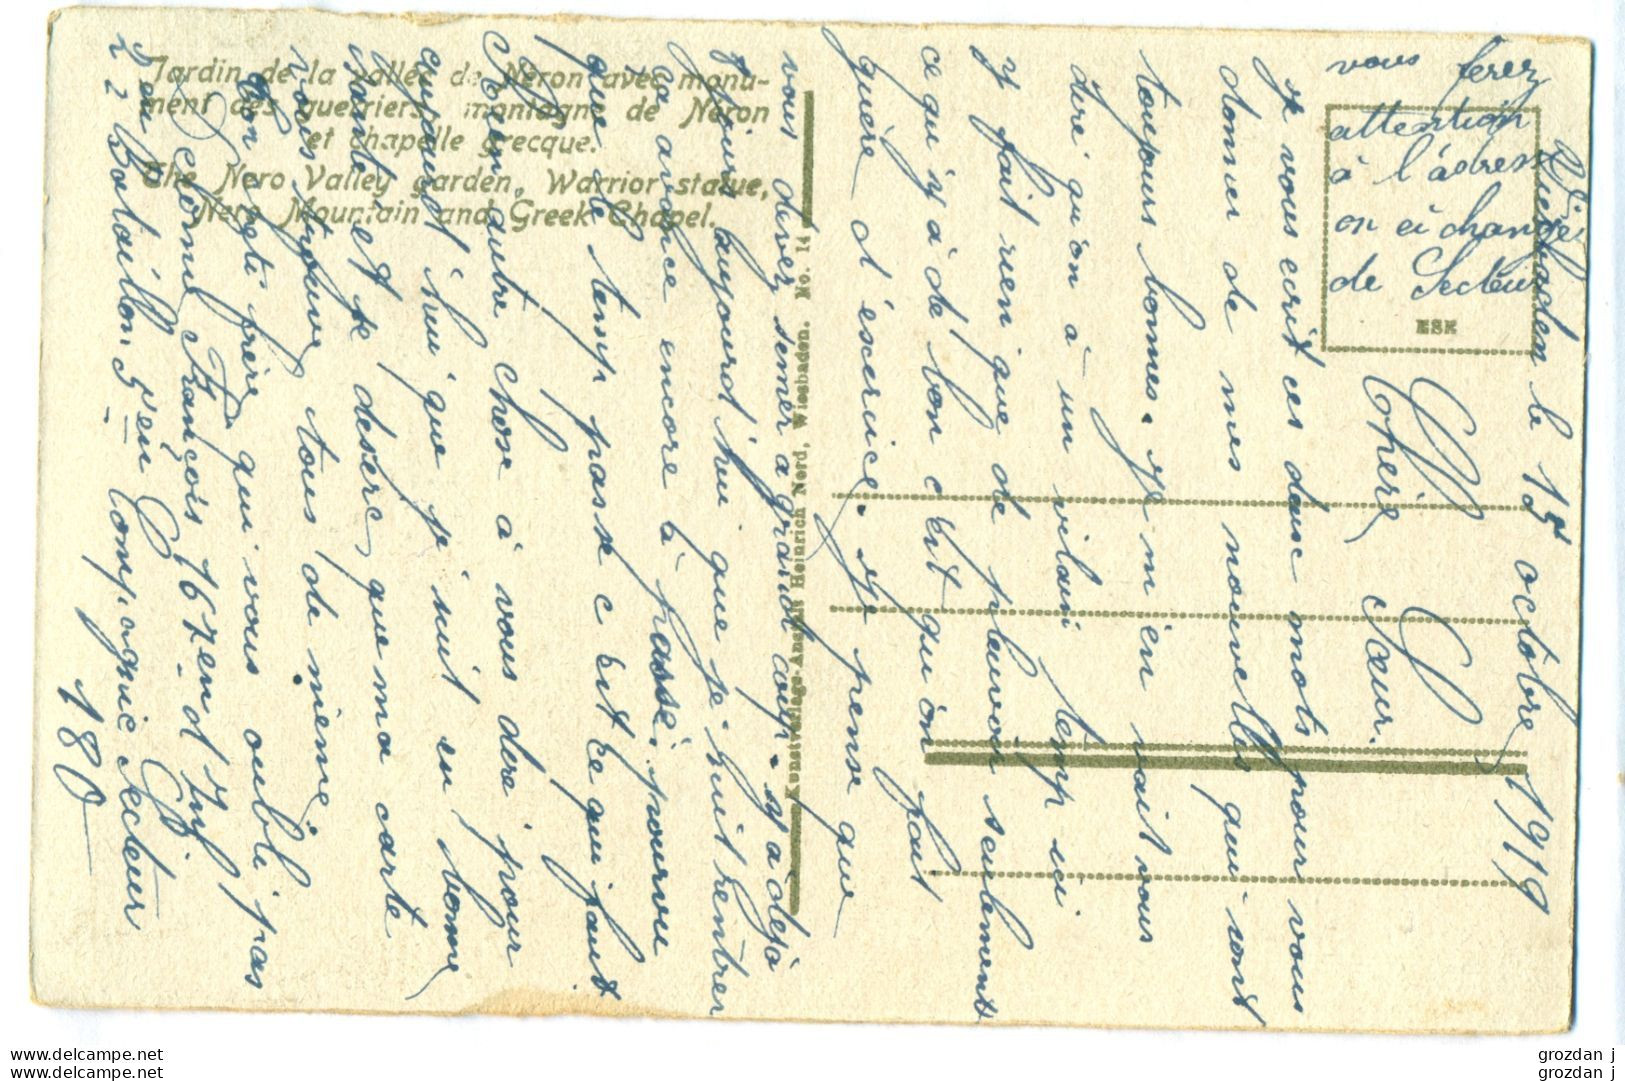 Jardin de la vallée de Néron avec monu-
ment des guerriers, montagne de Néron
et chapelle grecque.
The Nero Valley garden, Warrior statue,
Nero Mountain and Greek Chapel.
Kunstverlags-Anstalt Heinrich Nerd, Wiesbaden. No. 14
ESK
vous ferez
attention
à l'adress
on ei change
de Secteur
Wiesbaden le 15 octobre 1919
Cherie Sœur.
Je vous ecrit ces deux mots pour vous
donner de mes nouvelles qui sont
toujours bonnes. Je m'en vait vous
dire qu'on à un vilain temp ici
y fait rien que de pleuvoir seulement
ce qu'y à de bon c'est qu'on fait
guère d'éscercice. Je pense que
vous devez semer a grand coup. s'a déjà
8 jours aujourd'hui que je suit rentrer
sa avance encore là passé. pourvu
que le temp passe c'est ce qui faut
Rien autre chose à vous dire pour
aujourd'hui que je suit en bonne
santé et je desire que ma carte
vous trouve tous de même.
Ton petit frère qui vous oubli pas
Delorme François 167 en d'Inf
2 eu Bataillon 5 eu Compagnie Secteur
180
delcampe.net
grozdan j
delcampe.net
grozdan j